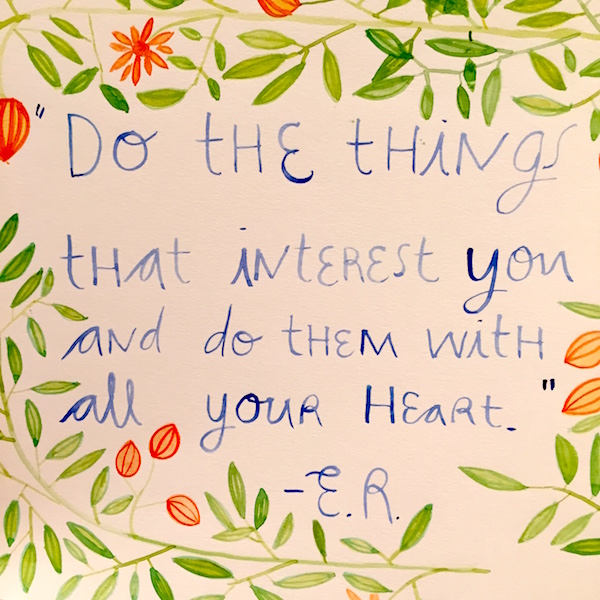 "Do tHE tHiNgs
tHat iNtEREst you
aNd do tHEM WitH
all youR HEaRt."
-E.R.